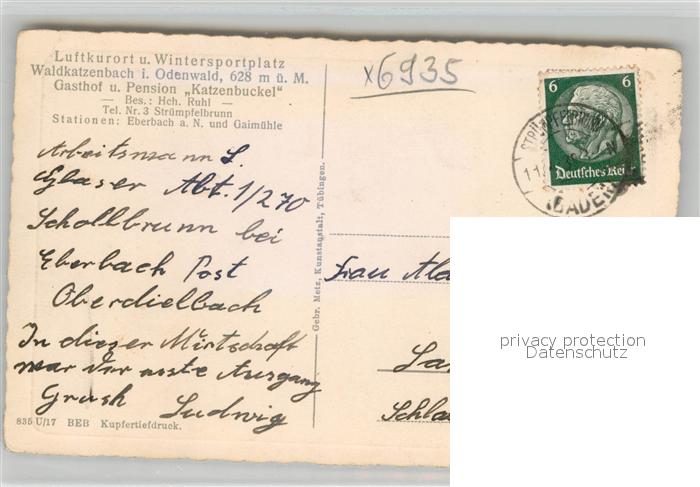 Luftkurort u. Wintersportplatz
Waldkatzenbach i. Odenwald, 628 m ü. M.
Gasthof u. Pension „Katzenbuckel"
— Bes.: Hch. Ruhl —
Tel. Nr. 3 Strümpfelbrunn
Stationen: Eberbach a. N. und Gaimühle
x6935
6 6
Deutsches Reich
(BADEN)
Arbeitsmann L.
Glaser Abt. 1/270
Schollbrunn bei
Eberbach Post
Oberdielbach
In dieser Wirtschaft
war der erste Ausgang
Gruß Ludwig
Gebr. Metz, Kunstanstalt, Tübingen.
Frau
privacy protection
Datenschutz
835 U/17 BEB Kupfertiefdruck.